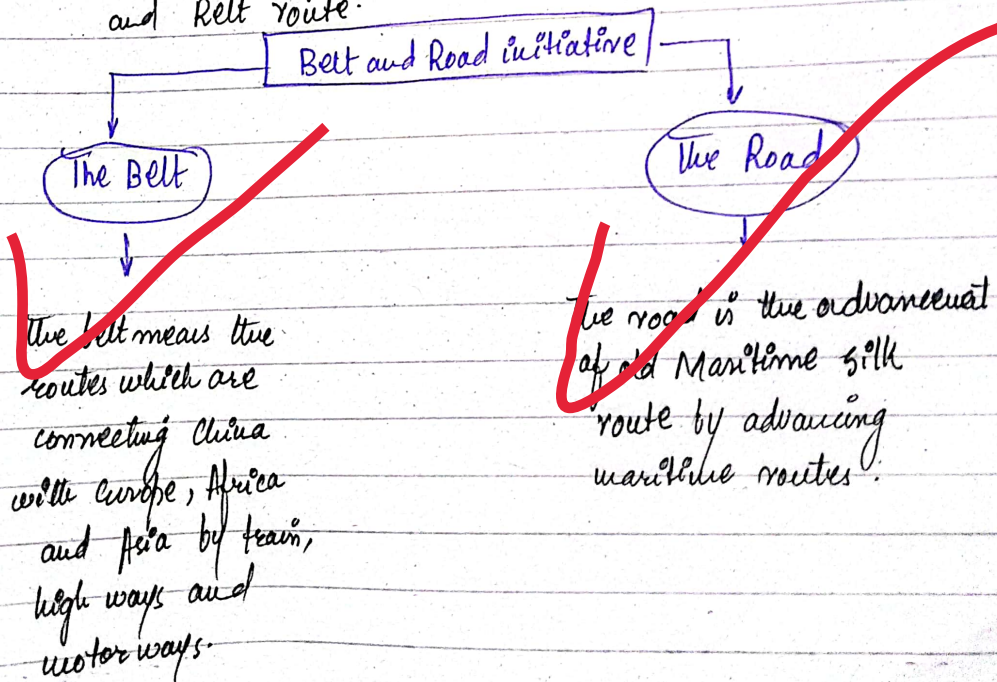 and Relt route.
Belt and Road initiative
The Belt
The Road
The belt means the
routes which are
connecting China
with Europe, Africa
and Asia by train,
high ways and
motor ways.
The road is the advancement
of old Maritime Silk
route by advancing
maritime routes.